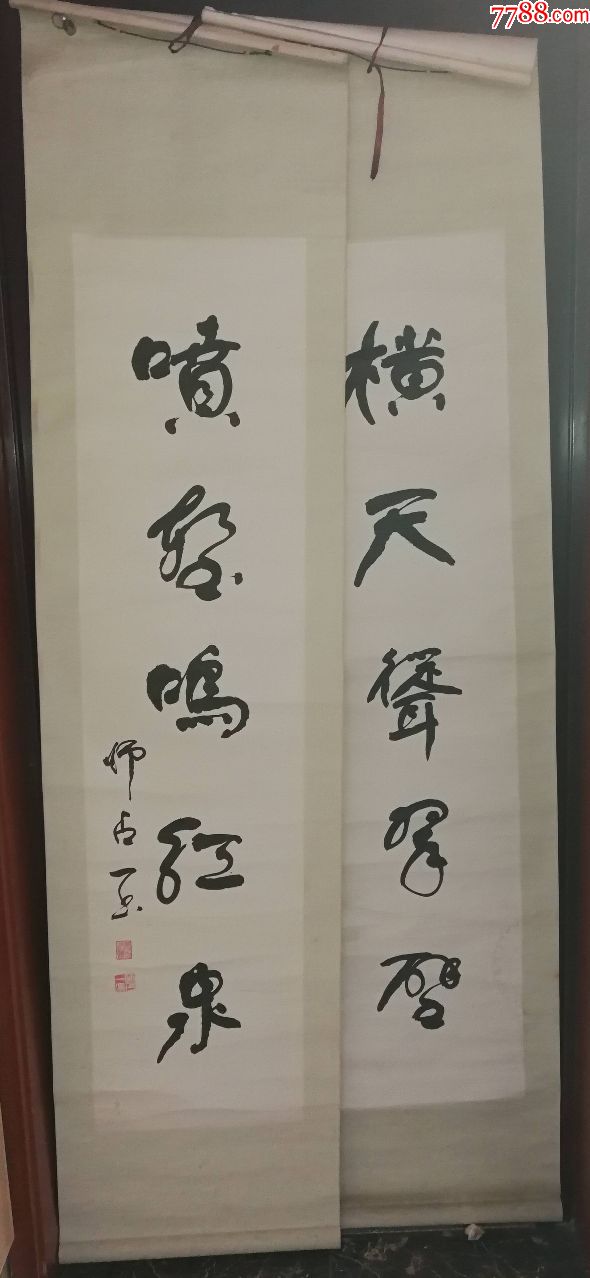 7788.com
横天聳翠壁
噴壑鳴紅泉